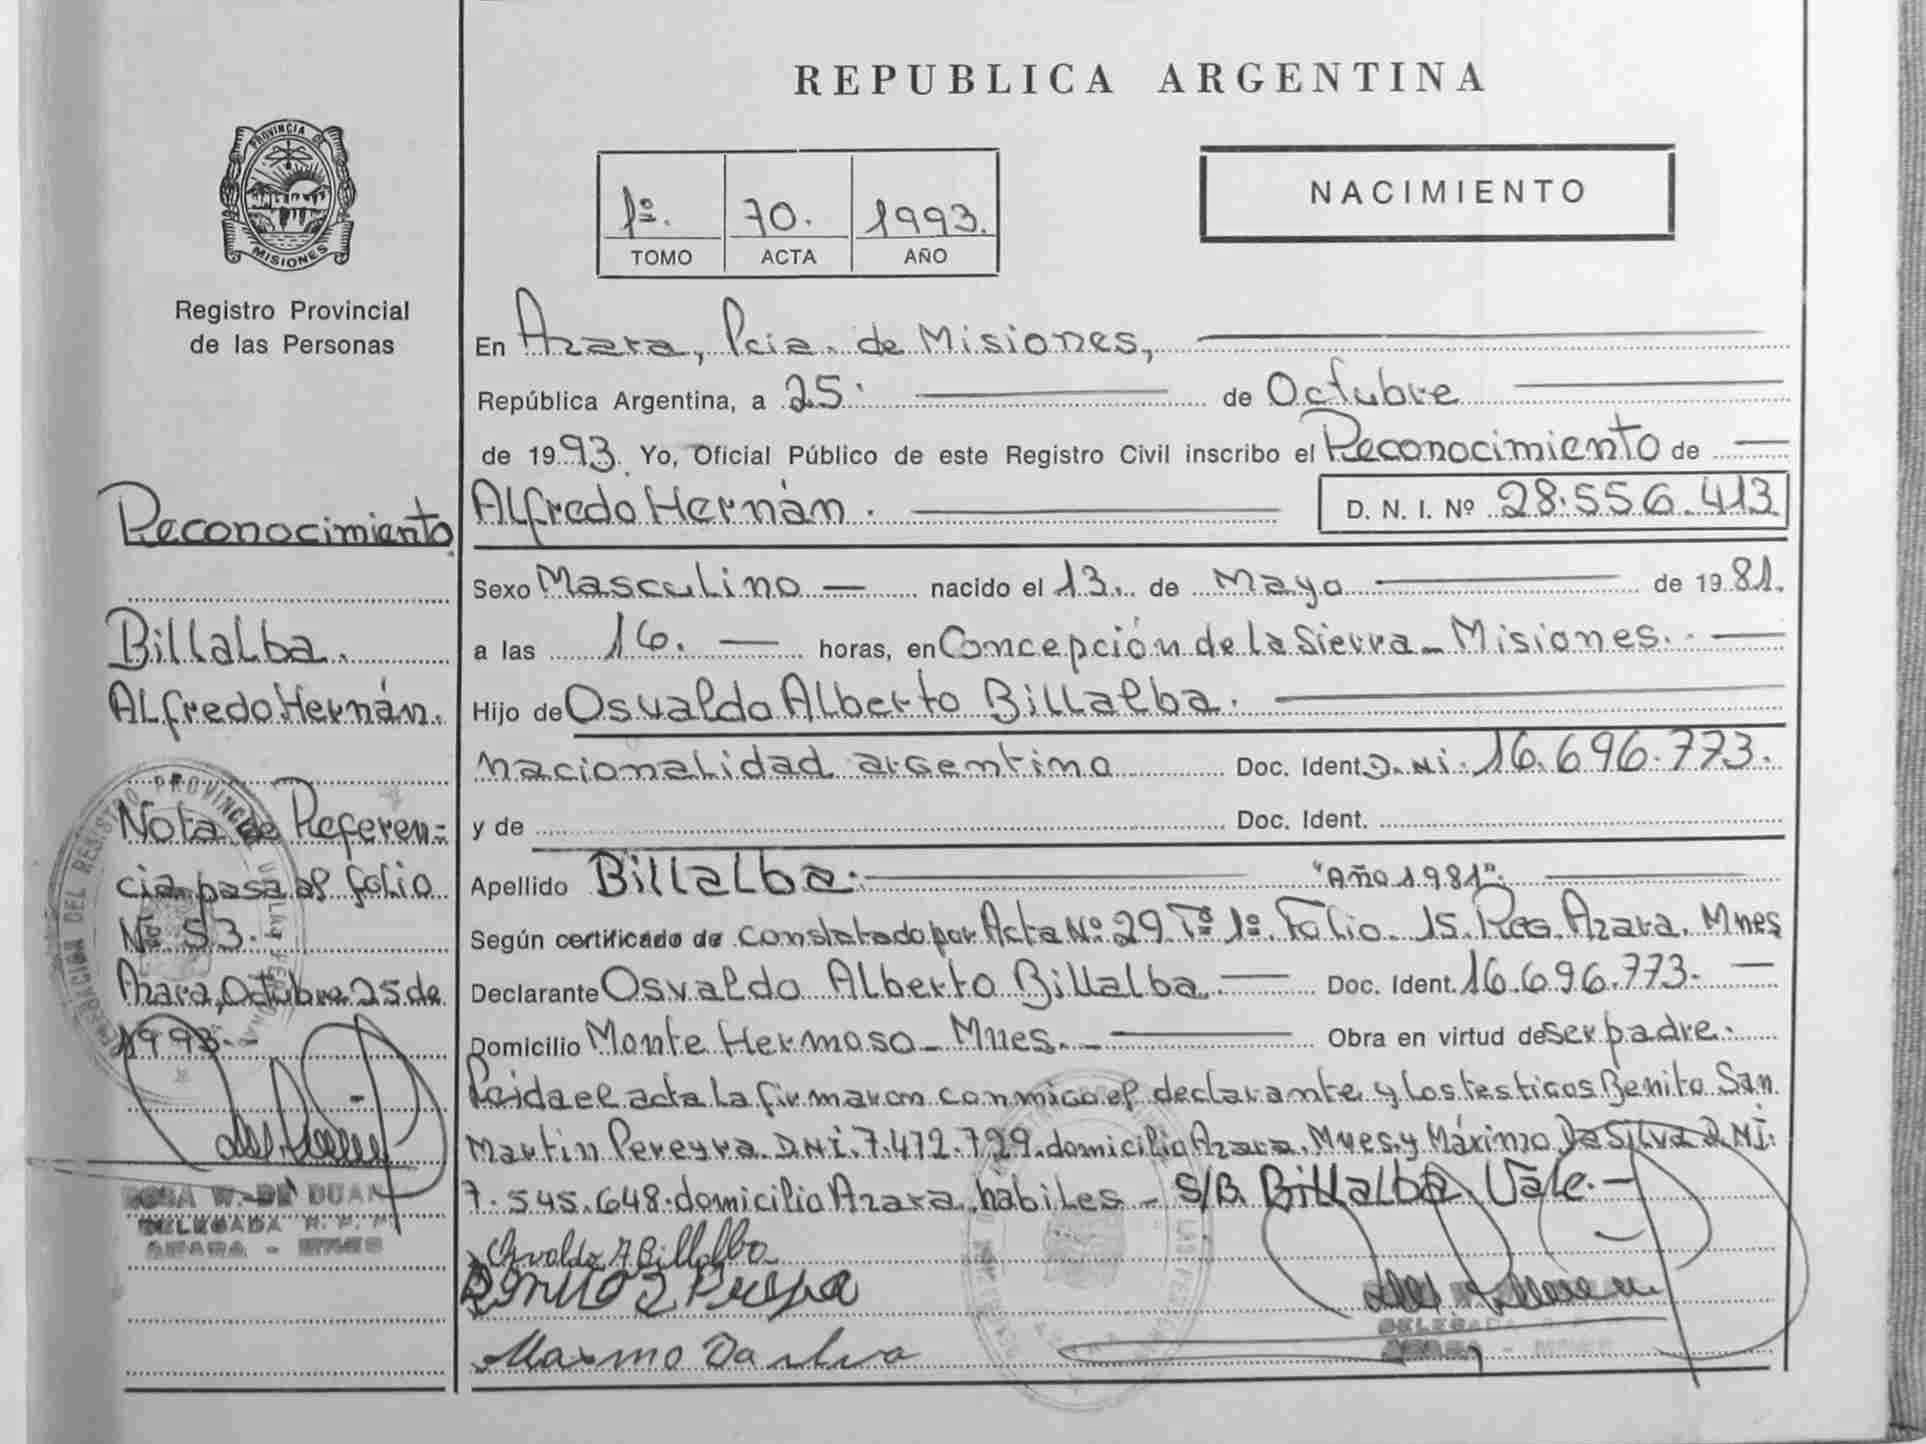 REPUBLICA ARGENTINA
PROVINCIA DE
MISIONES
Registro Provincial
de las Personas
1º. 70. 1993.
TOMO ACTA AÑO
NACIMIENTO
En Azara, Pcia. de Misiones,
República Argentina, a 25. de Octubre
de 1993. Yo, Oficial Público de este Registro Civil inscribo el Reconocimiento de
Alfredo Hernán. D. N. I. Nº 28.556.413
Sexo Masculino nacido el 13. de Mayo de 1981.
a las 16. horas, en Concepción de la Sierra - Misiones.
Hijo de Osvaldo Alberto Billalba.
Nacionalidad argentino Doc. Ident. D.Ni. 16.696.773.
y de Doc. Ident.
Apellido Billalba. "Año 1981".
Según certificado de constatado por Acta Nº 29 Tº 1º. Folio. 15. Reg. Azara. Mnes
Declarante Osvaldo Alberto Billalba Doc. Ident. 16.696.773.
Domicilio Monte Hermoso - Mnes. - Obra en virtud de ser padre.
Leida el acta la firmaron conmigo el declarante y los testigos Benito San
Martin Pereyra. DNi. 7.472.729. domicilio Azara. Mnes. y Máximo Da Silva D.NI:
7.545.648. domicilio Azara. hábiles - S/B. Billalba. Vale. -
Osvaldo A Billalba
Maximo Da silva
Reconocimiento
Billalba.
Alfredo Hernán.
Nota de Referen=
cia pasa al folio
Nº 53.
Azara, Octubre 25 de
1993. -
DELEGADA
AZARA - MNES